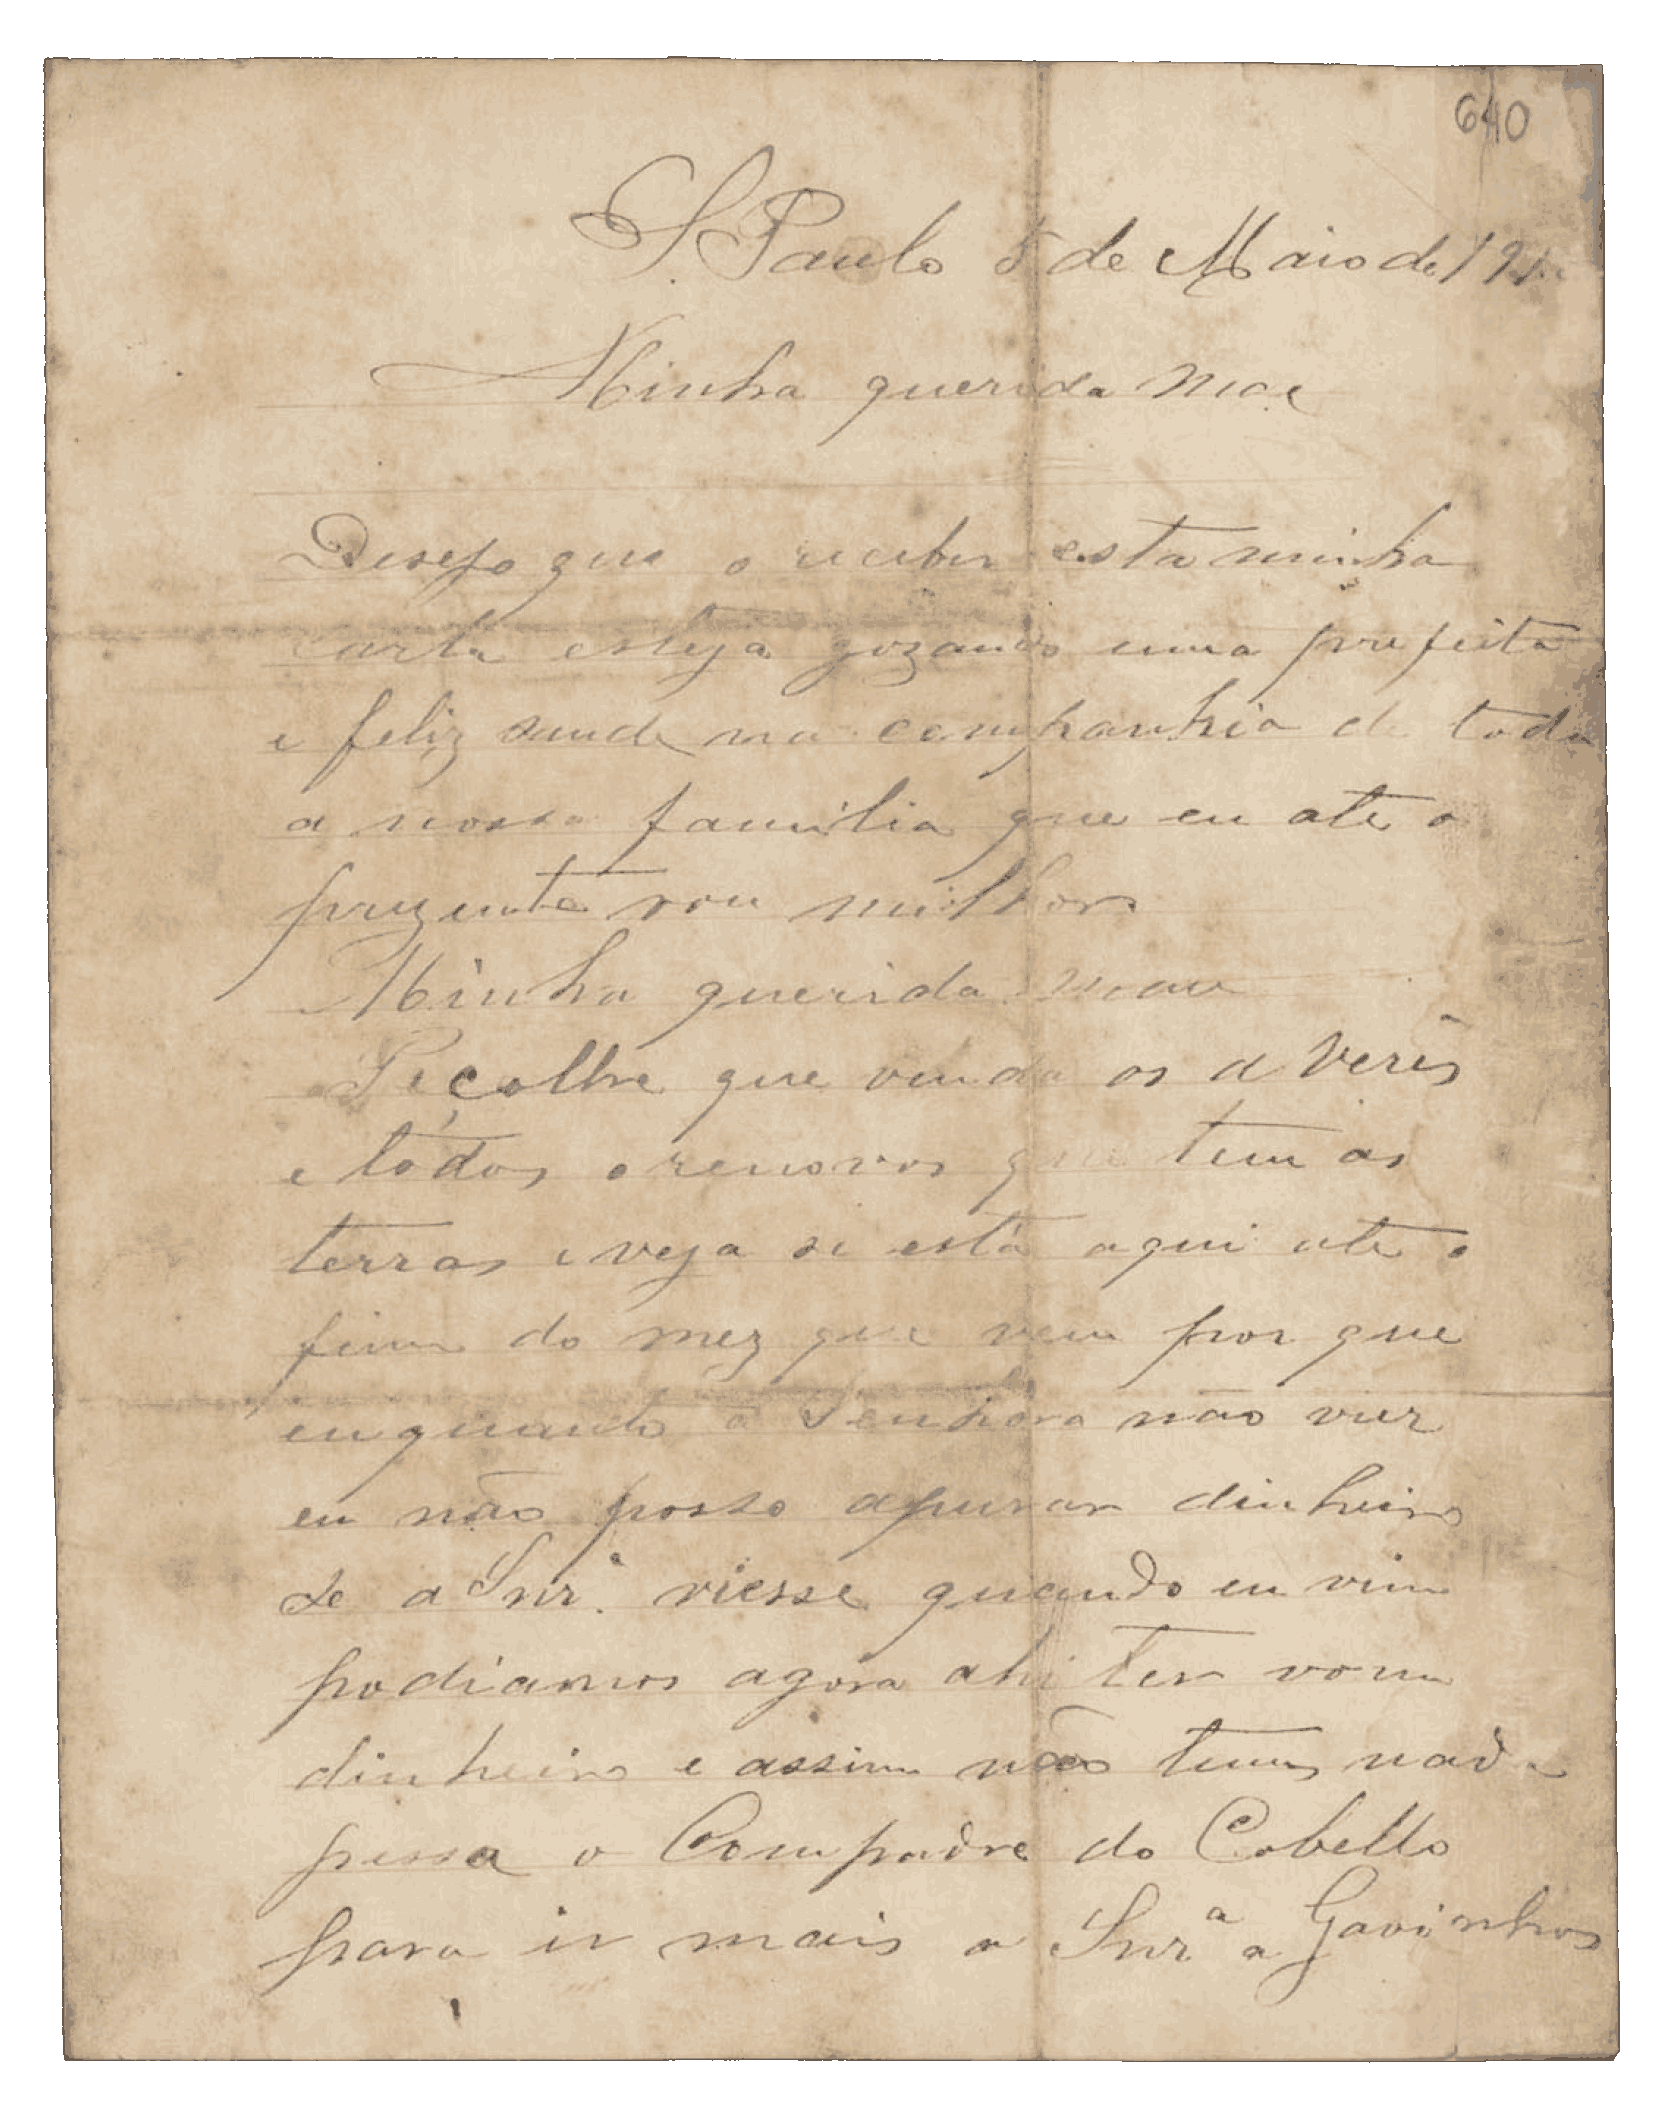 640
S. Paulo 5 de Maio de 191
Minha querida mae
Desejo que o receber esta minha
carta esteja gozando uma prefeita
e feliz saude na companhia de toda
a nossa familia que eu ate o
prezente vou milhor
Minha querida mae
Peçolhe que venda os a veres
e todos o renovos que tem as
terras e veja si está aqui ate o
fim do mez que vem por que
enquanto a Senhora não vier
eu não posso apurar dinheiro
se a Snrª viesse quando eu vim
podiamos agora ahi ter vom
dinheiro e assim não temos nada
pessa o Compadre do Cobello
para ir mais a Snrª a Gavinhos